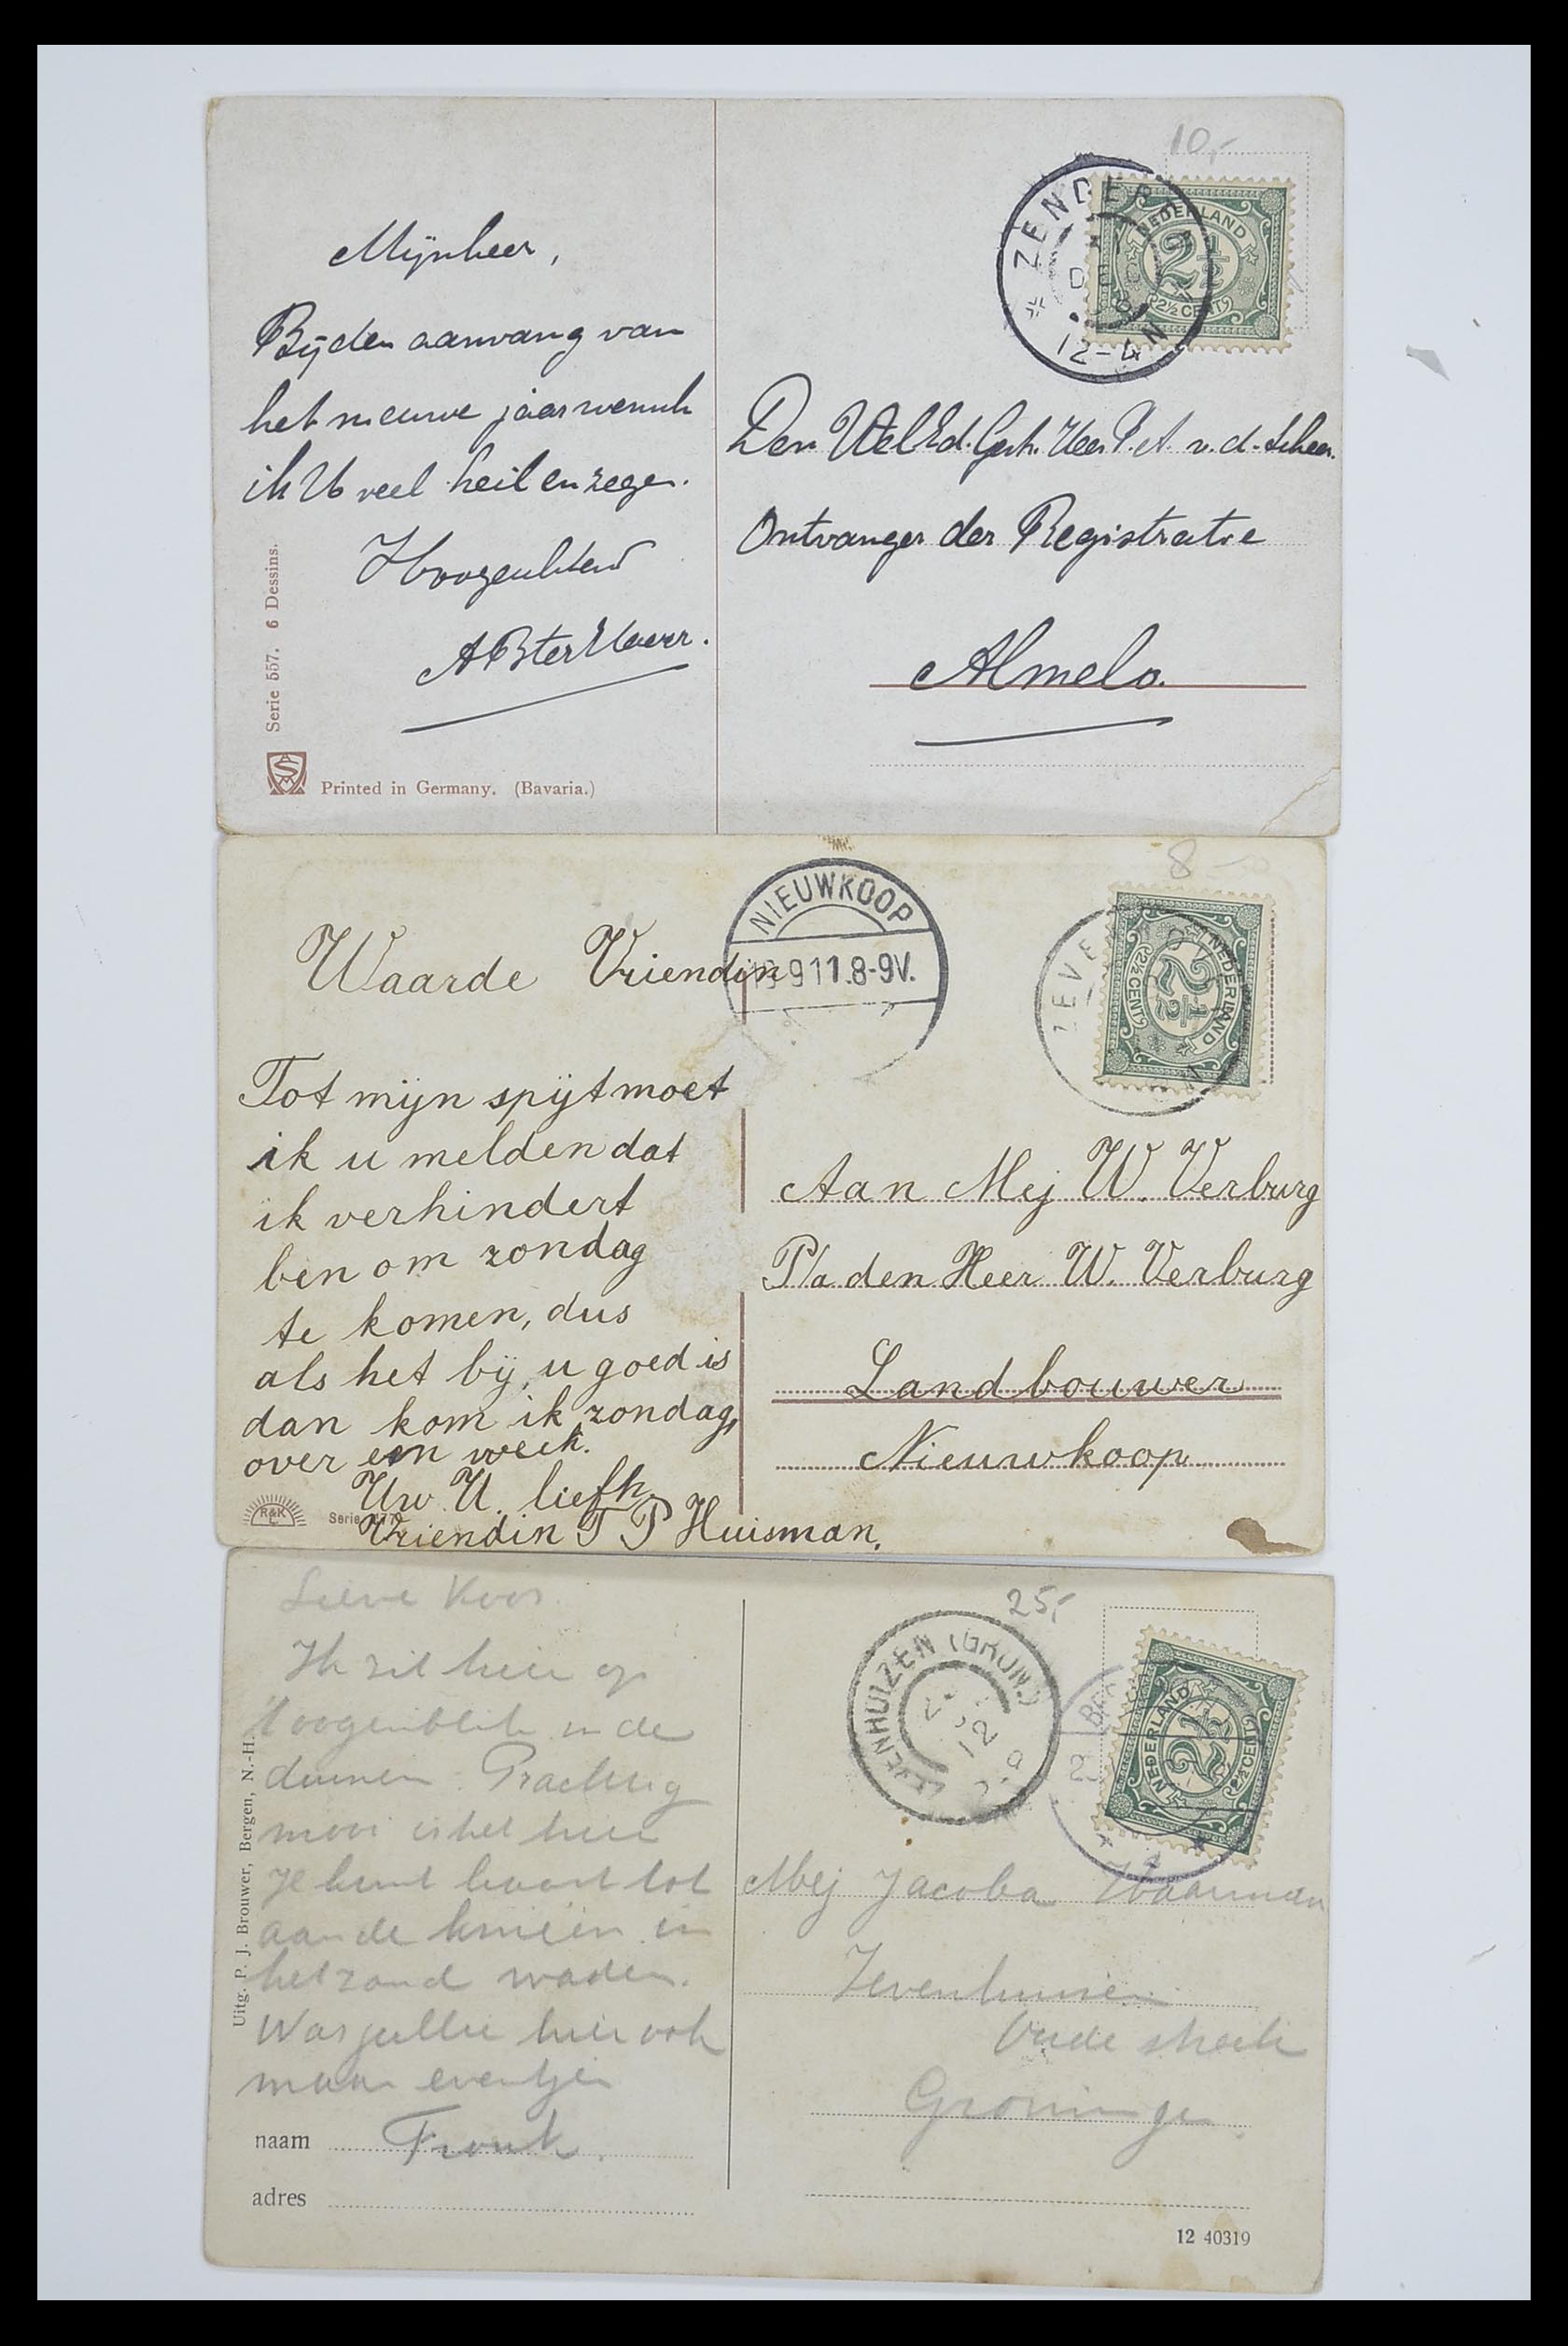 10,-
ZENDER
12-4 N
NEDERLAND
2½
2½ CENT
Mijnheer,
Bij den aanvang van
het nieuwe jaar wensch
ik U veel heil en zegen.
Hoogachtend
A B ter Haar.
Den WelEd. Gestr. Heer P. A. v. d. Scheer.
Ontvanger der Registratie
Almelo.
Serie 557. 6 Dessins.
Printed in Germany. (Bavaria.)
8-
NIEUWKOOP
9 11.8-9V.
ZEVE
NEDERLAND
2½
2½ CENT
Waarde Vriendin
Tot mijn spijt moet
ik u melden dat
ik verhindert
ben om zondag
te komen, dus
als het bij u goed is
dan kom ik zondag,
over een week.
Uw U. liefh.
Vriendin T P Huisman.
Aan Mej W. Verburg
P/a den Heer W. Verburg
Landbouwer
Nieuwkoop
R&K
L
Serie
25,-
ENHUIZEN (GRON.)
NEDERLAND
2½
2½ CENT
Lieve Koos
Ik zit hier op
't oogenblik in de
duinen. Prachtig
mooi is het hier
Je kunt haast tot
aan de knieën in
het zand waden.
Was jullie hier ook
maar eventjes
naam Frouk.
adres
Uitg. P. J. Brouwer, Bergen, N.-H.
Mej Jacoba Haarman
Zevenhuizen
Oude streek
Groningen
12 40319